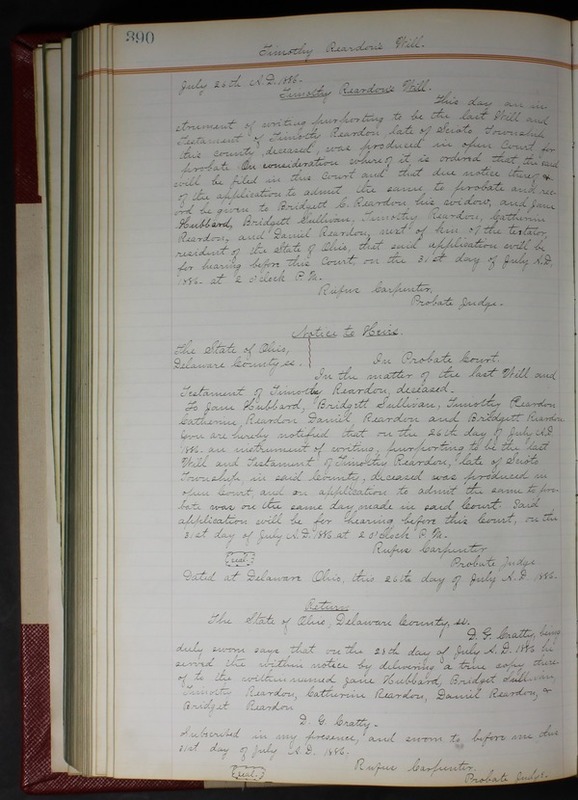 390
Timothy Reardon's Will.
July 26th A.D. 1886.
Timothy Reardon's Will.
This day an in
strument of writing purporting to be the last Will and
Testament of Timothy Reardon, late of Scioto Township
this county, deceased, was produced in open Court for
probate. On consideration whereof it is ordered that the said
will be filed in this Court and that due notice thereof &
of the application to admit the same to probate and rec-
ord be given to Bridgett C. Reardon his widow, and Jane
Hubbard, Bridgett Sullivan, Timothy Reardon, Catherin
Reardon, and Daniel Reardon, next of kin of the testator,
resident of the State of Ohio, that said application will be
for hearing before this Court, on the 31st day of July A.D.
1886. at 2 o'clock P.M.
Rufus Carpenter,
Probate Judge.
Notice to Heirs.
The State of Ohio,
Delaware County ss.
In Probate Court.
In the matter of the last Will and
Testament of Timothy Reardon, deceased.
To Jane Hubbard, Bridgett Sullivan, Timothy Reardon
Catherine Reardon Daniel Reardon and Bridgett Reardon
You are hereby notified that on the 26th day of July A.D.
1886. an instrument of writing, purporting to be the last
Will and Testament of Timothy Reardon, late of Scioto
Township, in said County, deceased was produced in
open Court, and an application to admit the same to pro-
bate was on the same day made in said Court. Said
application will be for hearing before this Court, on the
31st day of July A.D. 1886 at 2 o'clock P.M.
Rufus Carpenter
seal
Probate Judge
Dated at Delaware Ohio, this 26th day of July A.D. 1886.
Return
The State of Ohio, Delaware County, ss.
D. G. Cratty, being
duly sworn says that on the 28th day of July A.D. 1886 he
served the within notice by delivering a true copy there-
of to the within named Jane Hubbard, Bridget Sullivan,
Timothy Reardon, Catherine Reardon, Daniel Reardon, &
Bridget Reardon
D. G. Cratty.
Subscribed in my presence, and sworn to before me this
31st day of July A.D. 1886.
Rufus Carpenter.
seal
Probate Judge.